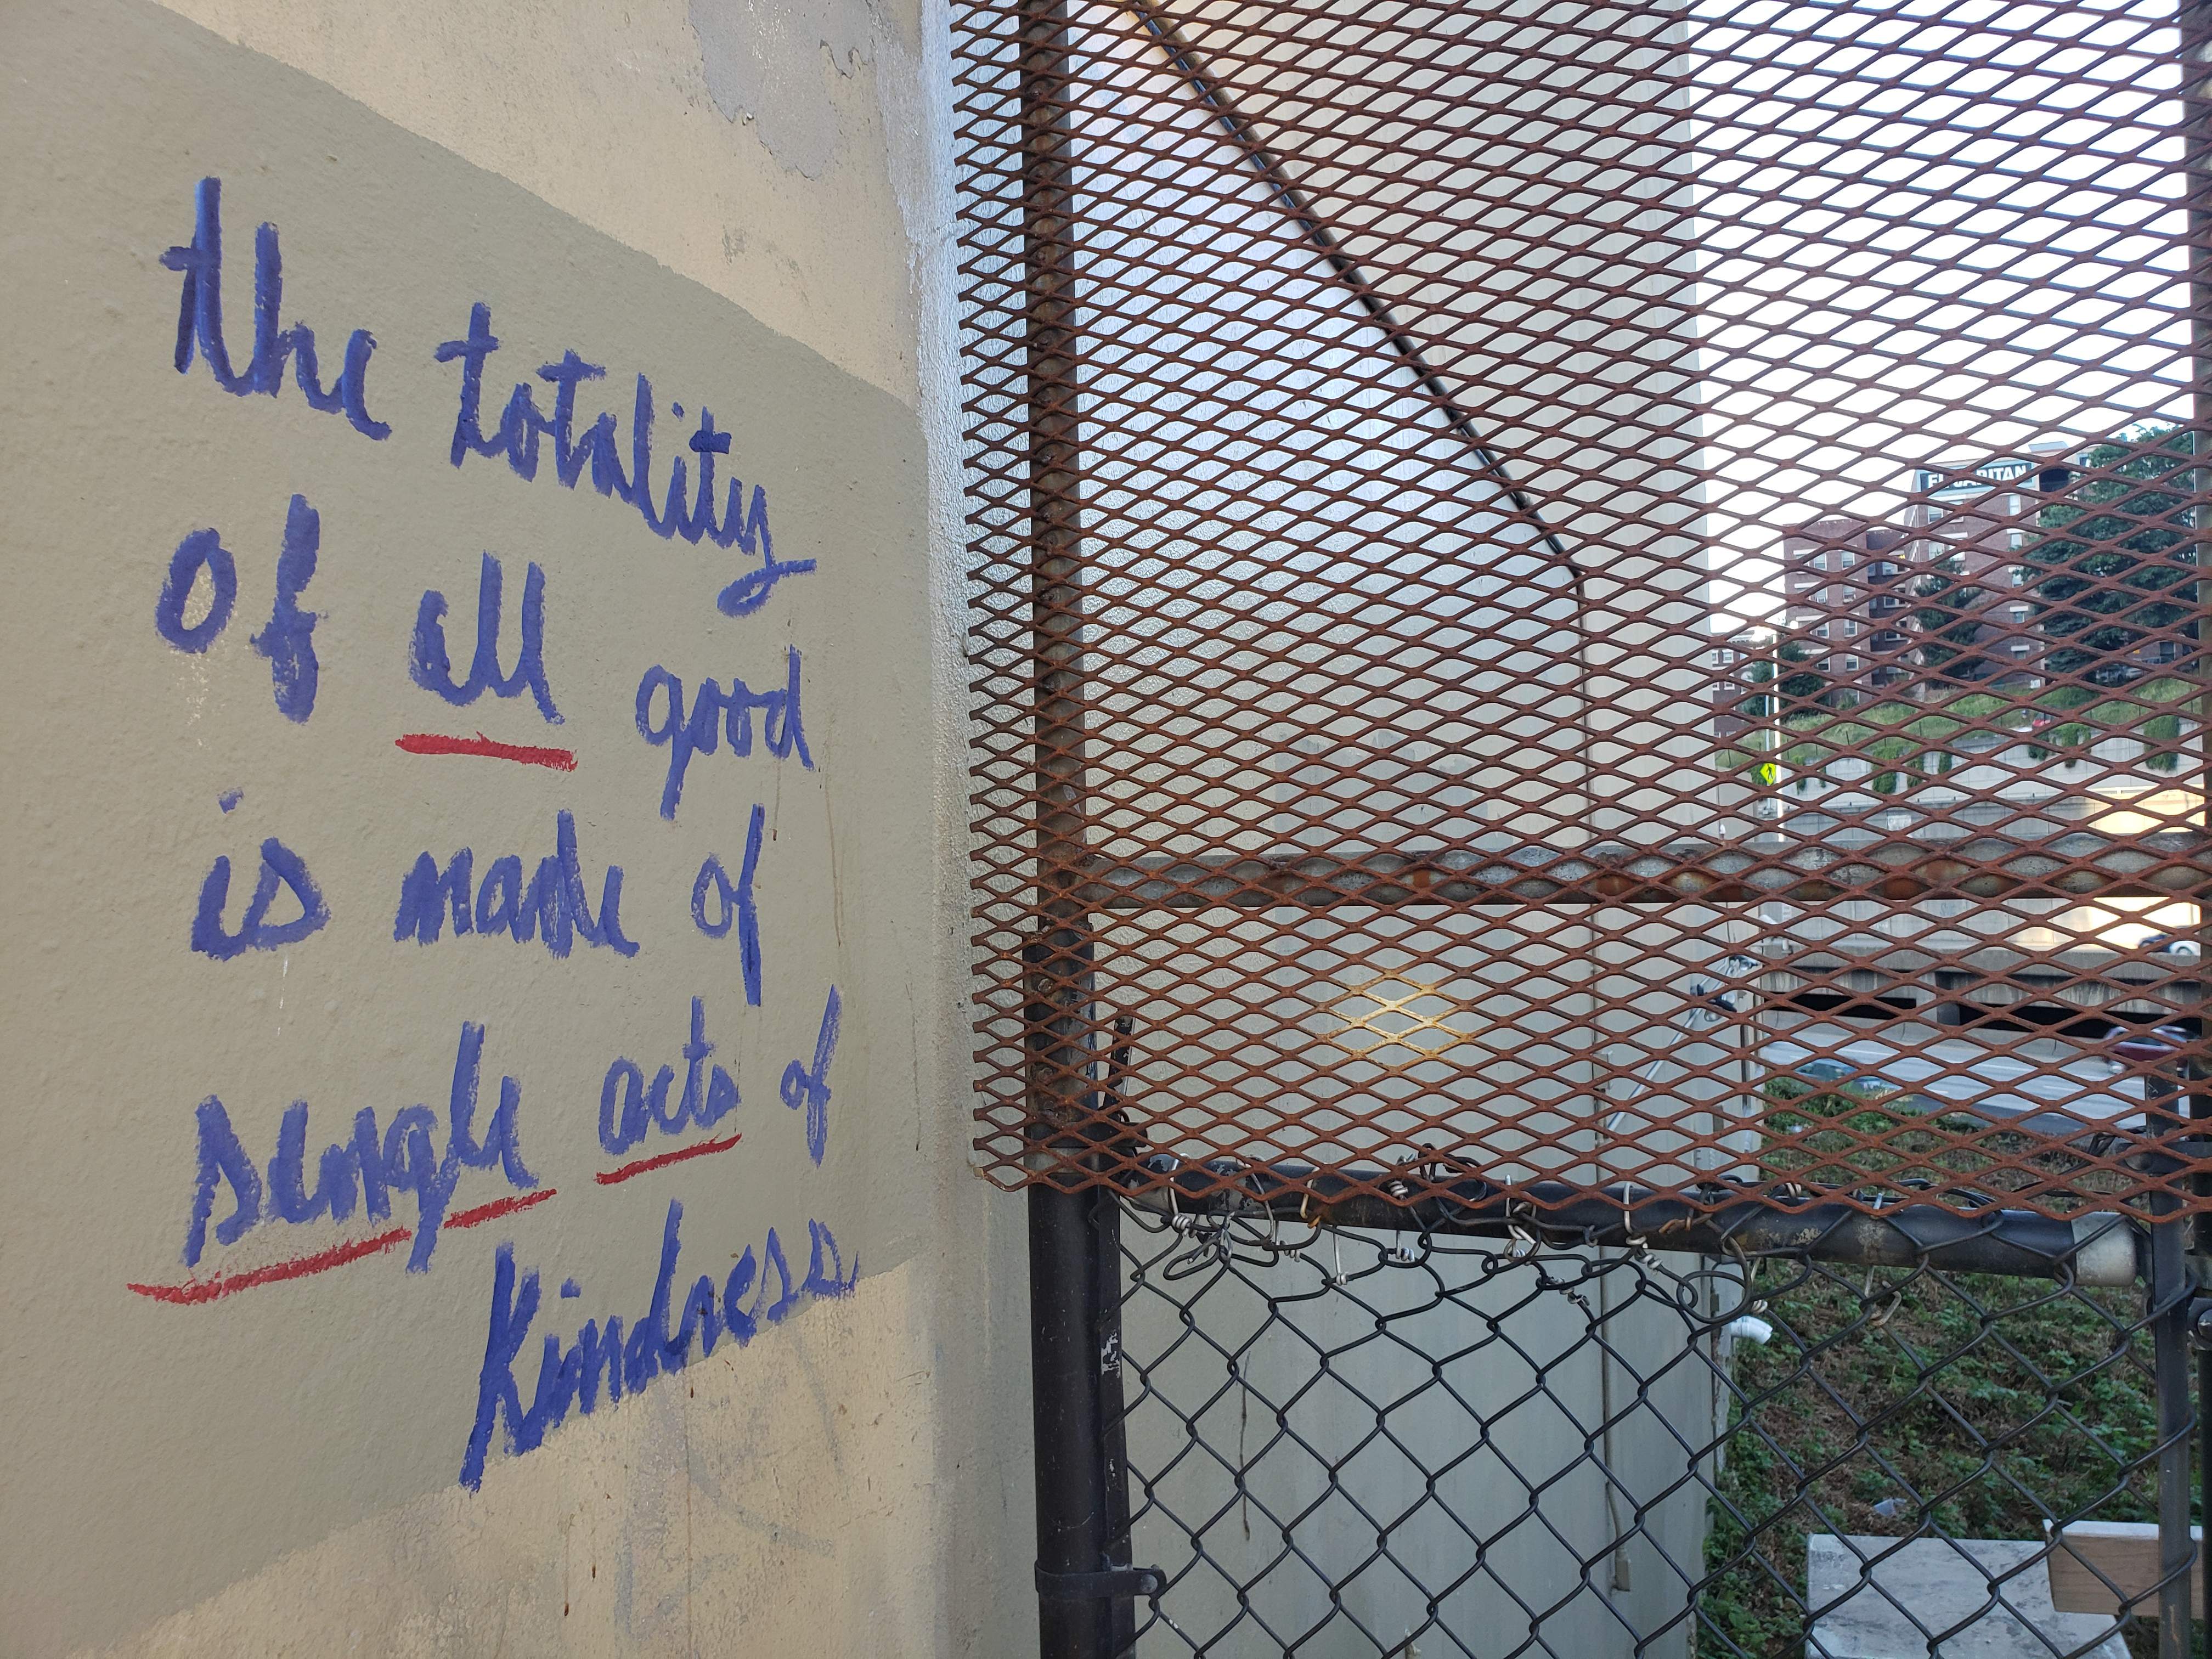 the totality
of all good
is made of
single acts of
kindness